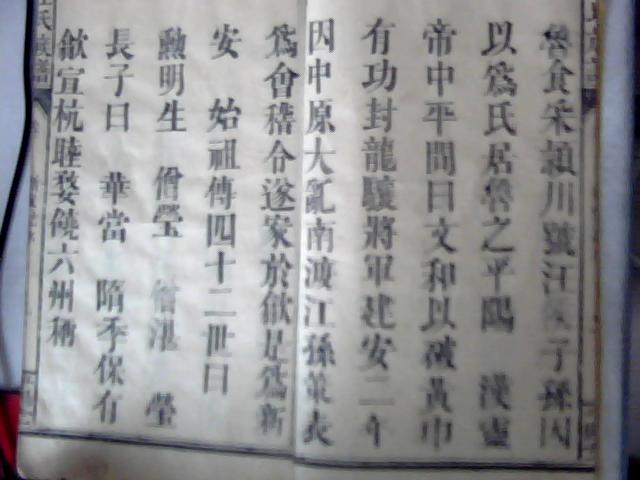 魯食采潁川號汪侯子孫因
以爲氏居魯之平陽　漢靈
帝中平間曰文和以破黃巾
有功封龍驤將軍建安二年
因中原大亂南渡江孫策表
爲會稽令遂家於歙是爲新
安　始祖傳四十二世曰
勲明生　僧瑩　僧湛　瑩
長子曰　華當　隋季保有
歙宣杭睦婺饒六州稱
氏族譜